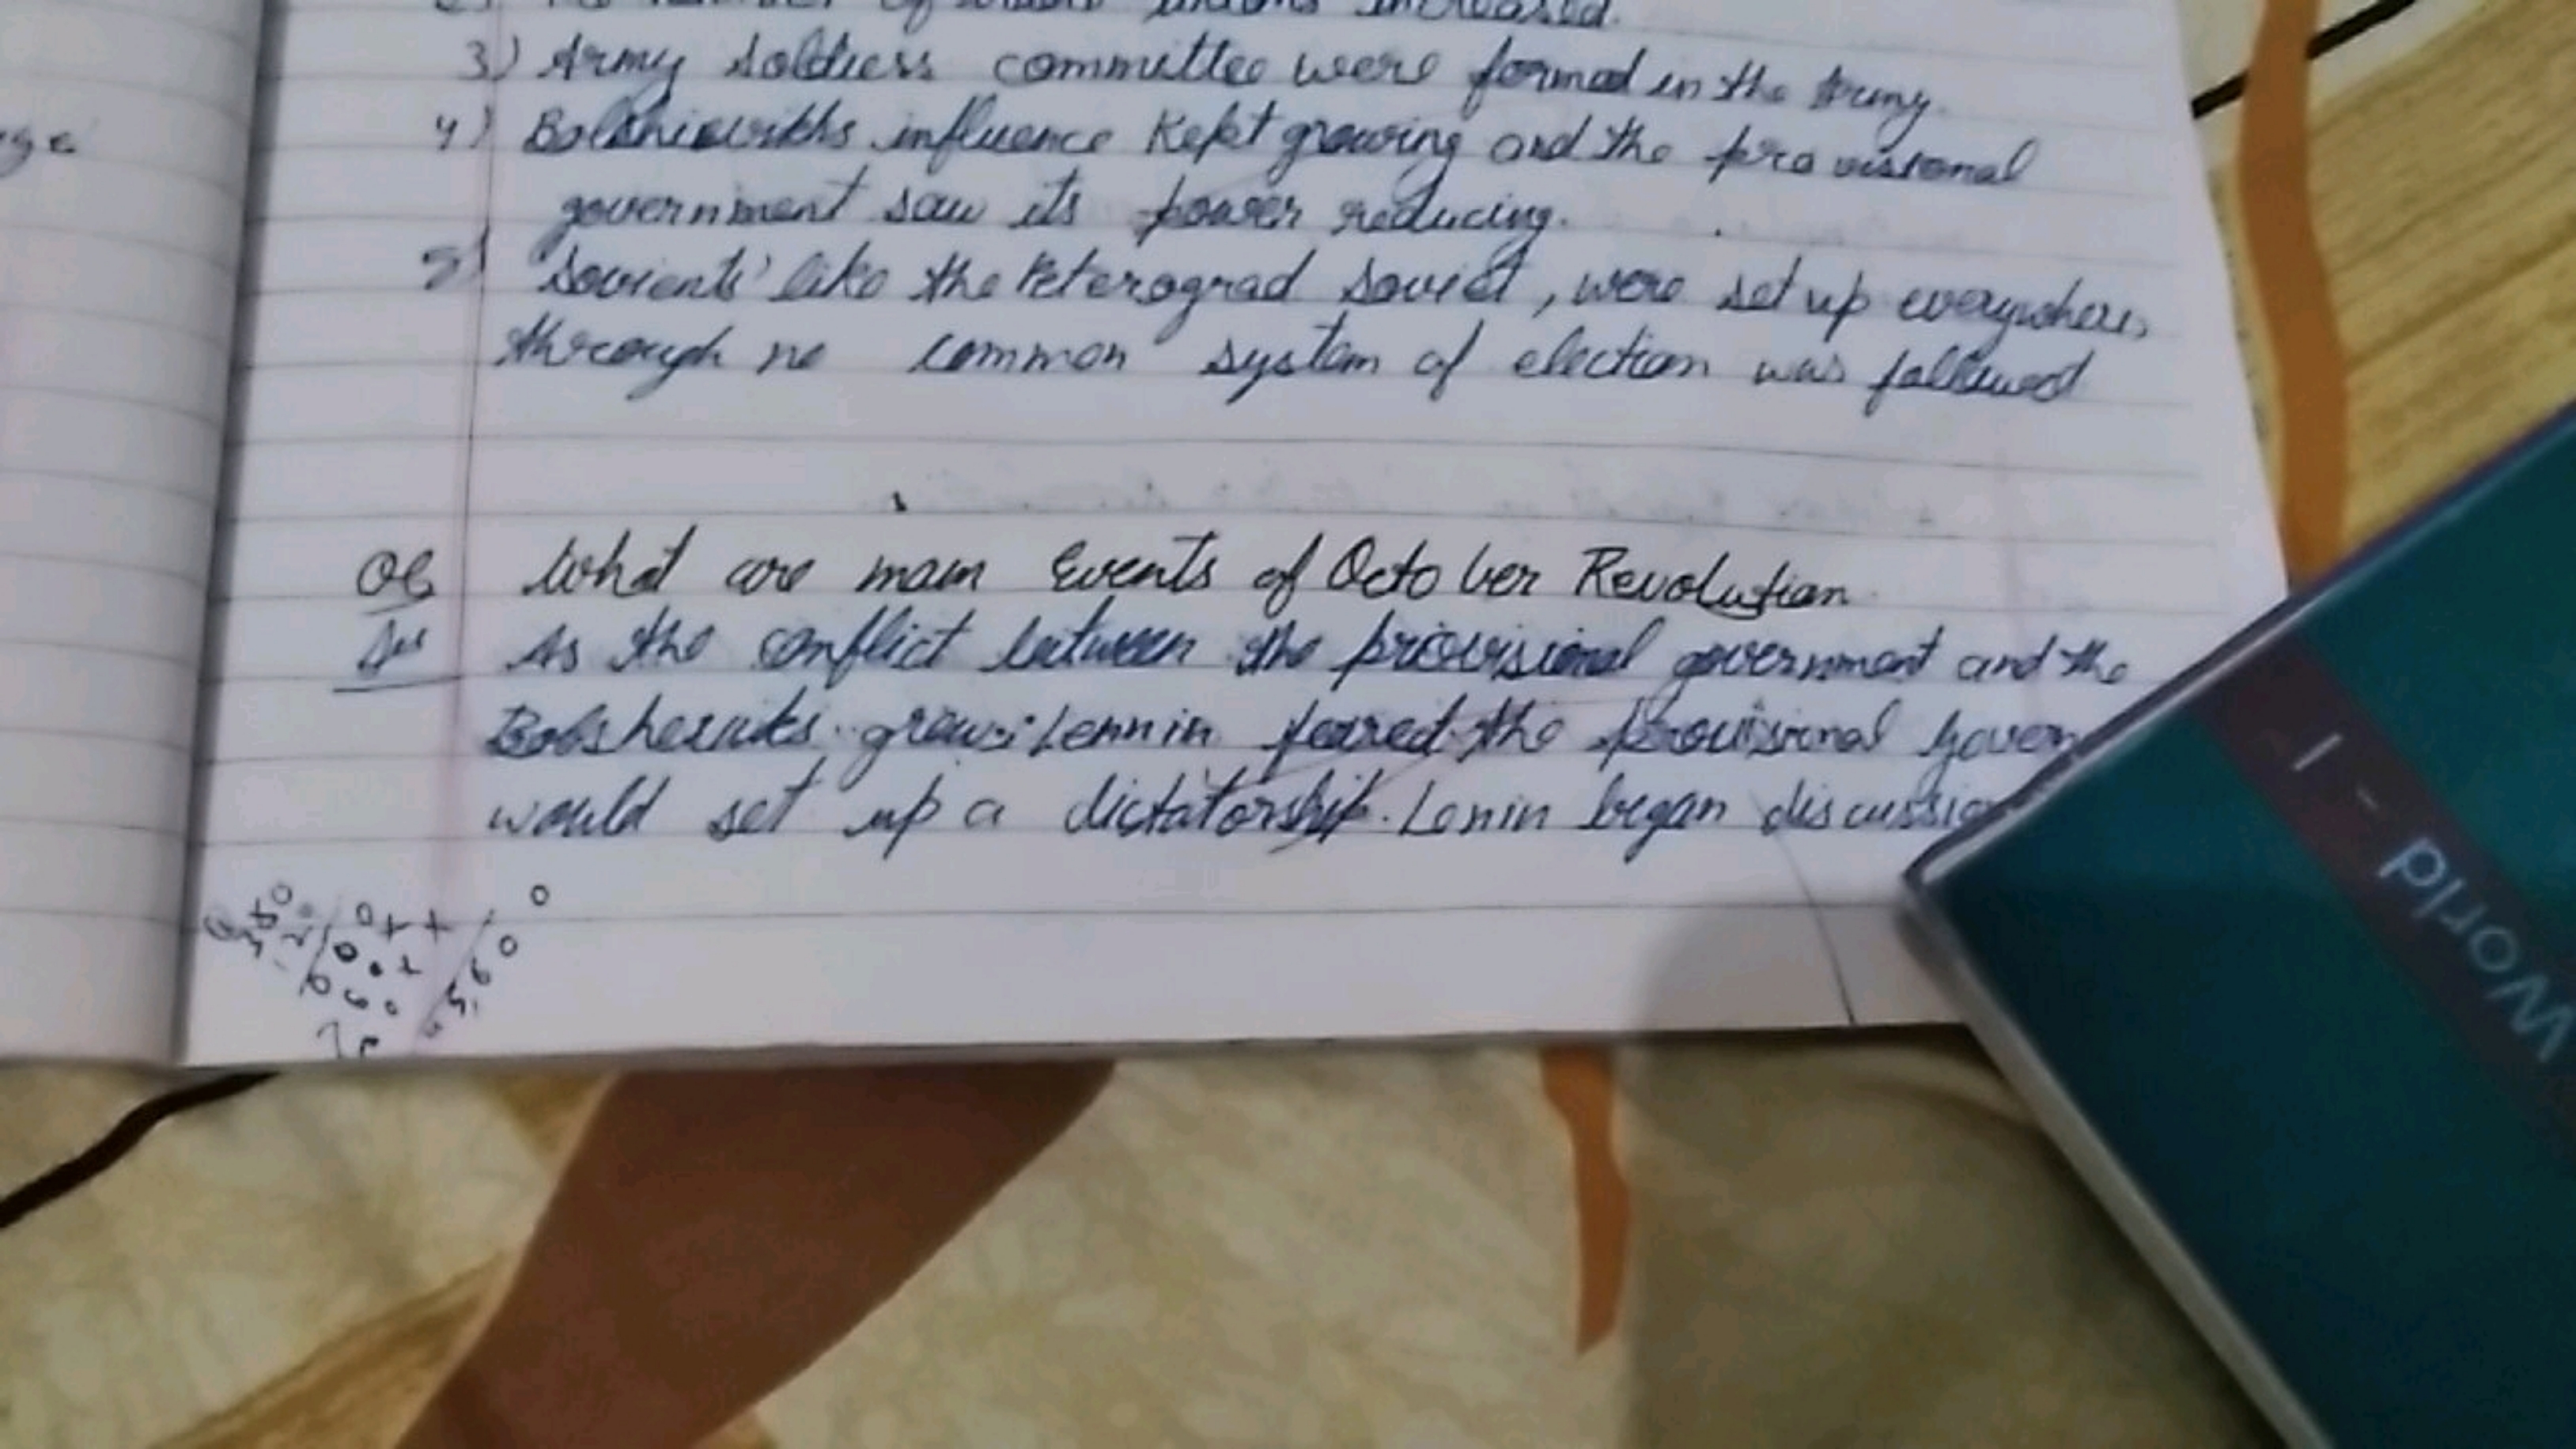 of trade unions increased.
3) Army Soldiess committee were formed in the Army.
4) Bolshievikhs influence Kept growing and the provisional
government saw its power reducing.
5) 'Sovients' like the Peterograd Soviet, were set up everywhere,
through no common system of election was followed
Q6 What are main Events of October Revolution
Ans As the conflict between the provisional government and the
Bolsheviks grew Lennin feared the provisional Govern
would set up a dictatorship. Lenin began discussio
World - I